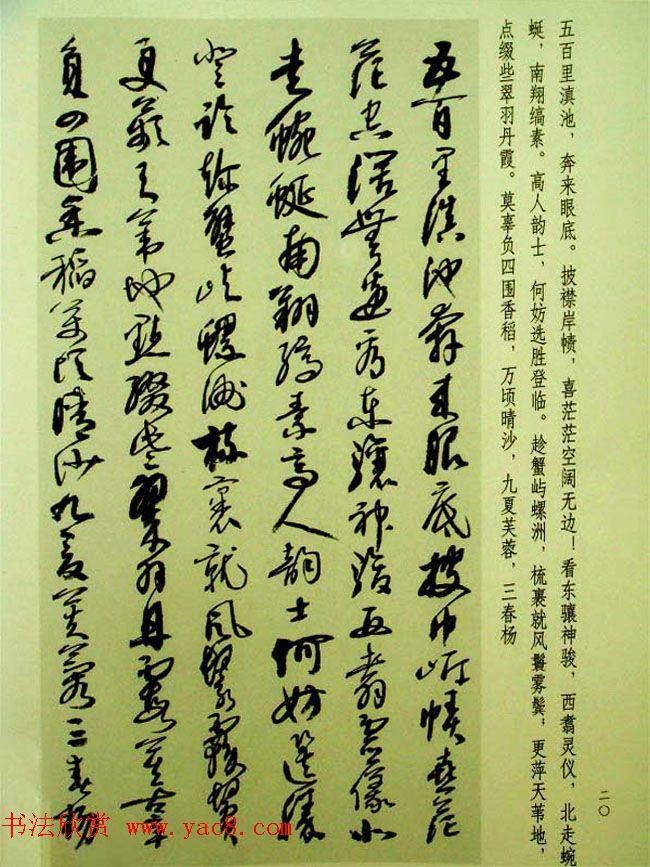 五百里滇池，奔来眼底。披襟岸帻，喜茫茫空阔无边！看东骧神骏，西翥灵仪，北走蜿
蜒，南翔缟素。高人韵士，何妨选胜登临。趁蟹屿螺洲，梳裹就风鬟雾鬓；更萍天苇地，
点缀些翠羽丹霞。莫辜负四围香稻，万顷晴沙，九夏芙蓉，三春杨
二〇
五百里滇池奔来眼底披巾岸帻喜茫
茫空阔無边看东驤神骏西翥灵儀北
走蜿蜒南翔缟素高人韵士何妨选胜
登临趁蟹屿螺洲梳裹就风鬟雾鬓
更蘋天苇地點缀些翠羽丹霞莫辜
負四围香稻萬顷晴沙九夏芙蓉三春杨
书法欣赏 www.yac8.com